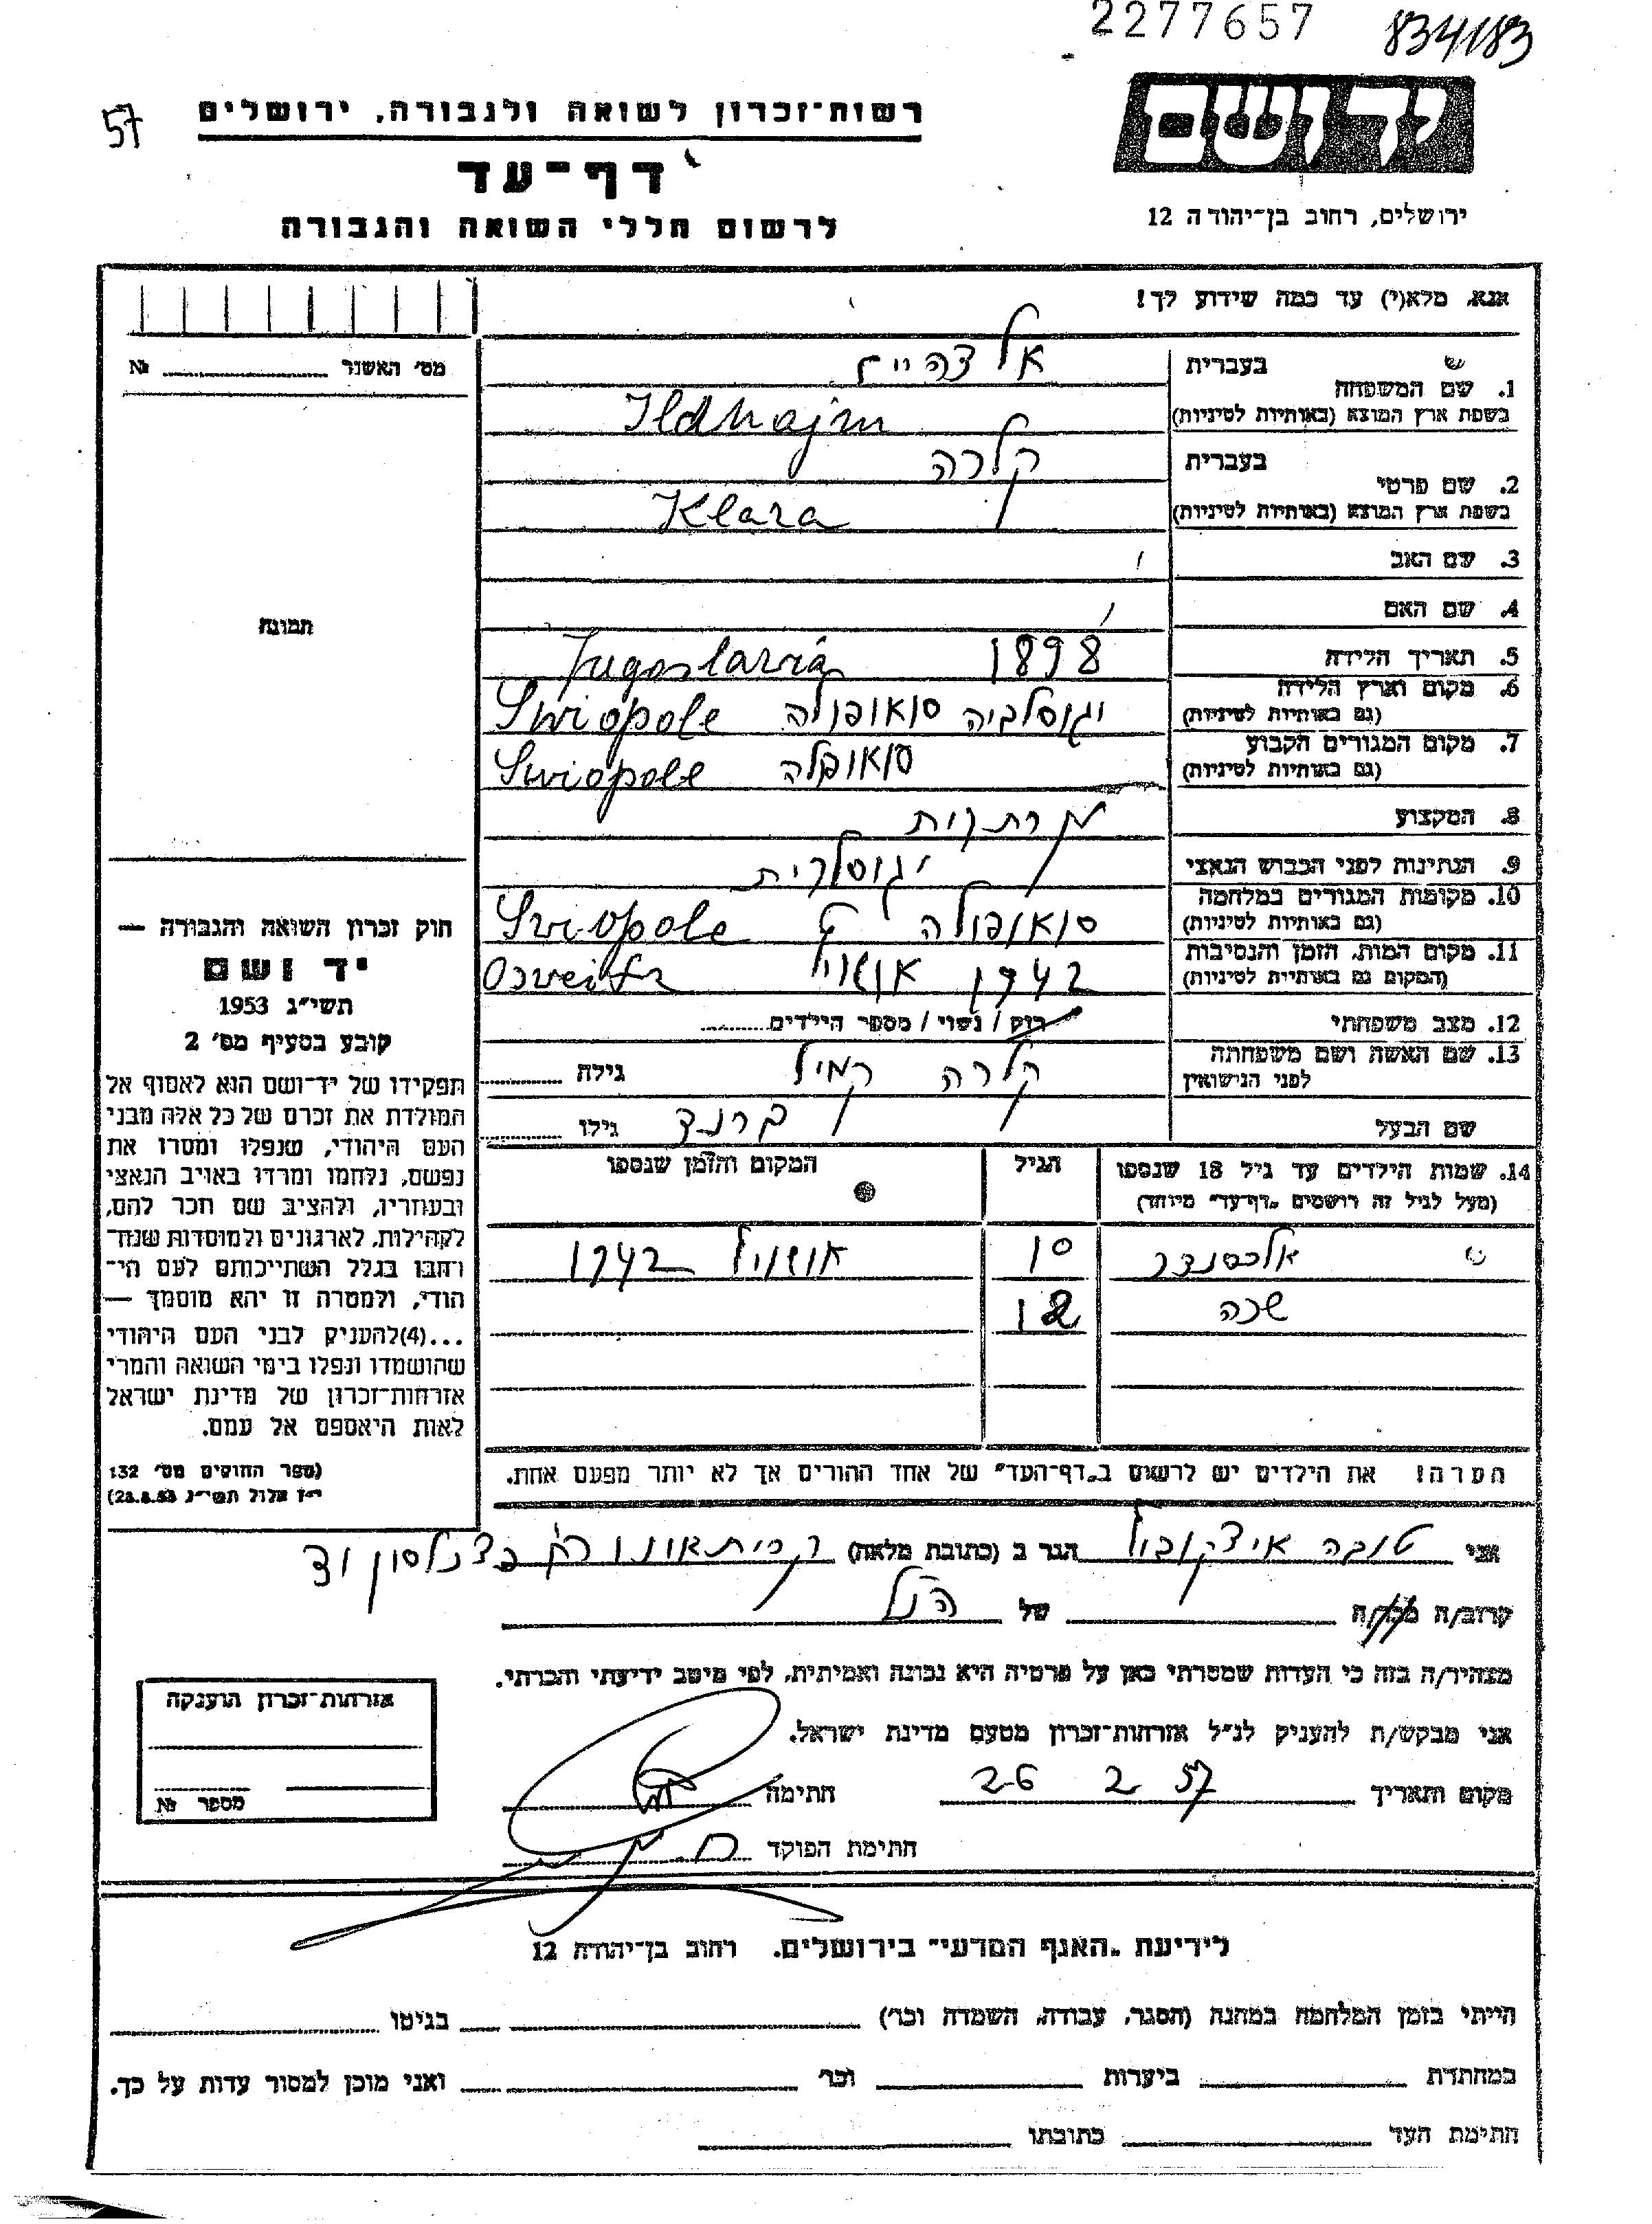 2277657
834/183
57
יד ושם
רשות־זכרון לשואה ולגבורה, ירושלים
דף־עד
לרשום חללי השואה והגבורה
ירושלים, רחוב בן־יהודה 12
אנא, מלא(י) עד כמה שידוע לך!
מס׳ האשנר № ........
תמונה
בעברית
1. שם המשפחה
בשפת ארץ המוצא (באותיות לטיניות)
Ildhajm
בעברית קלרה
2. שם פרטי
בשפת ארץ המוצא (באותיות לטיניות)
Klara
3. שם האב
4. שם האם
5. תאריך הלידה 1898
Jugoslavia
6. מקום וארץ הלידה
(גם באותיות לטיניות)
יגוסלביה סואופולה Swiopole
7. מקום המגורים הקבוע
(גם באותיות לטיניות)
סואופלה Swiopole
8. המקצוע
9. הנתינות לפני הכבוש הנאצי
10. מקומות המגורים במלחמה
(גם באותיות לטיניות)
סואופולה Sviopole
11. מקום המות, הזמן והנסיבות
(המקום גם באותיות לטיניות)
1942
12. מצב משפחתי רוק / נשוי / מספר הילדים ........
13. שם האשה ושם משפחתה
לפני הנישואין
קלרה גילה ........
שם הבעל גילו ........
14. שמות הילדים עד גיל 18 שנספו
(מעל לגיל זה רושמים „דף־עד״ מיוחד)
הגיל
המקום והזמן שנספו
אלכסנדר 10 1942
12
הערה! את הילדים יש לרשום ב„דף־העד״ של אחד ההורים אך לא יותר מפעם אחת.
חוק זכרון השואה והגבורה —
יד ושם
תשי״ג 1953
קובע בסעיף מס׳ 2
תפקידו של יד־ושם הוא לאסוף אל
המולדת את זכרם של כל אלה מבני
העם היהודי, שנפלו ומסרו את
נפשם, נלחמו ומרדו באויב הנאצי
ובעוזריו, ולהציב שם וזכר להם,
לקהילות, לארגונים ולמוסדות שנח־
רבו בגלל השתייכותם לעם הי־
הודי, ולמטרה זו יהא מוסמך —
...(4) להעניק לבני העם היהודי
שהושמדו ונפלו בימי השואה והמרי
אזרחות־זכרון של מדינת ישראל
לאות היאספם אל עמם.
(ספר החוקים מס׳ 132
י״ז אלול תשי״ג 28.8.53)
אני טובה איצקוביץ הגר ב (כתובת מלאה)
קרוב/ה מכר/ה של הנ״ל
מצהיר/ה בזה כי העדות שמסרתי כאן על פרטיה היא נכונה ואמיתית, לפי מיטב ידיעתי והכרתי.
אני מבקש/ת להעניק לנ״ל אזרחות־זכרון מטעם מדינת ישראל.
מקום ותאריך 26 2 57 חתימה
חתימת הפוקד
אזרחות־זכרון הוענקה
מספר №
לידיעת „האגף המדעי״ בירושלים, רחוב בן־יהודה 12
הייתי בזמן המלחמה במחנה (הסגר, עבודה, השמדה וכו׳) בגיטו
במחתרת ביערות וכו׳ ואני מוכן למסור עדות על כך.
חתימת העד כתובתו